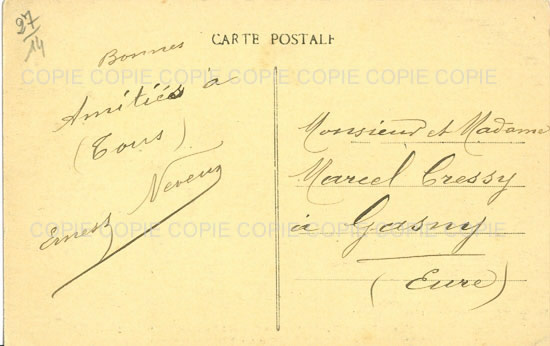 27
14
CARTE POSTALE
Bonnes
Amitiés à
(Tous)
Ernest Neveux
Monsieur et Madame
Marcel Cressy
à Gasny
(Eure)
COPIE COPIE COPIE COPIE COPIE COPIE
COPIE COPIE COPIE COPIE COPIE COPIE
COPIE COPIE COPIE COPIE COPIE COPIE